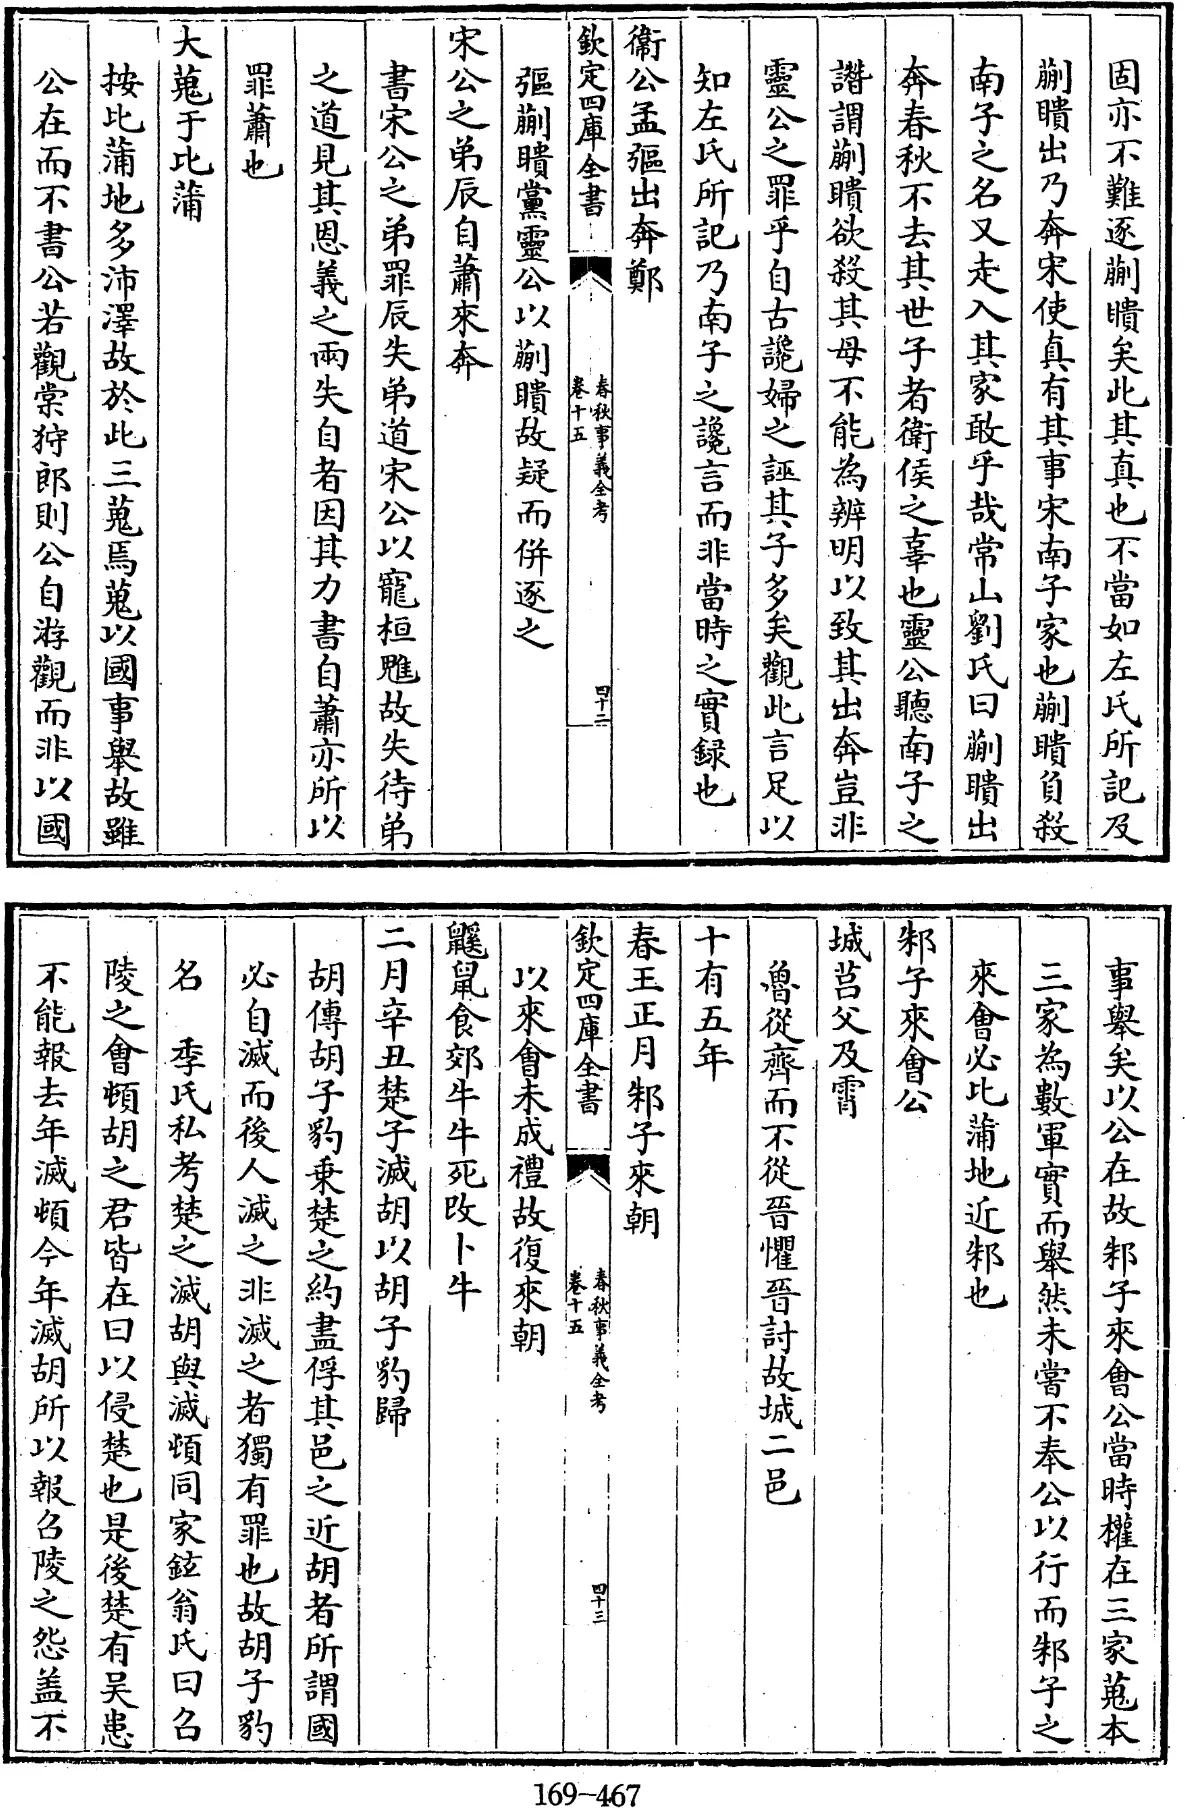 固亦不難逐蒯聵矣此其真也不當如左氏所記及
蒯聵出乃奔宋使真有其事宋南子家也蒯聵負殺
南子之名又走入其家敢乎哉常山劉氏曰蒯聵出
奔春秋不去其世子者衛侯之辜也靈公聽南子之
譖謂蒯聵欲殺其母不能為辨明以致其出奔豈非
靈公之罪乎自古讒婦之誣其子多矣觀此言足以
知左氏所記乃南子之讒言而非當時之實録也
衛公孟彄出奔鄭
欽定四庫全書
春秋事義全考
卷十五
四十二
彄蒯聵黨靈公以蒯聵故疑而併逐之
宋公之弟辰自蕭來奔
書宋公之弟罪辰失弟道宋公以寵桓魋故失待弟
之道見其恩義之兩失自者因其力書自蕭亦所以
罪蕭也
大蒐于比蒲
按比蒲地多沛澤故於此三蒐焉蒐以國事舉故雖
公在而不書公若觀棠狩郎則公自游觀而非以國
事舉矣以公在故邾子來會公當時權在三家蒐本
三家為數軍實而舉然未嘗不奉公以行而邾子之
來會必比蒲地近邾也
邾子來會公
城莒父及霄
魯從齊而不從晉懼晉討故城二邑
十有五年
春王正月邾子來朝
欽定四庫全書
春秋事義全考
卷十五
四十三
以來會未成禮故復來朝
鼷鼠食郊牛牛死改卜牛
二月辛丑楚子滅胡以胡子豹歸
胡傳胡子豹乗楚之約盡俘其邑之近胡者所謂國
必自滅而後人滅之非滅之者獨有罪也故胡子豹
名　季氏私考楚之滅胡與滅頓同家鉉翁氏曰召
陵之會頓胡之君皆在曰以侵楚也是後楚有吴患
不能報去年滅頓今年滅胡所以報召陵之怨盖不
169-467